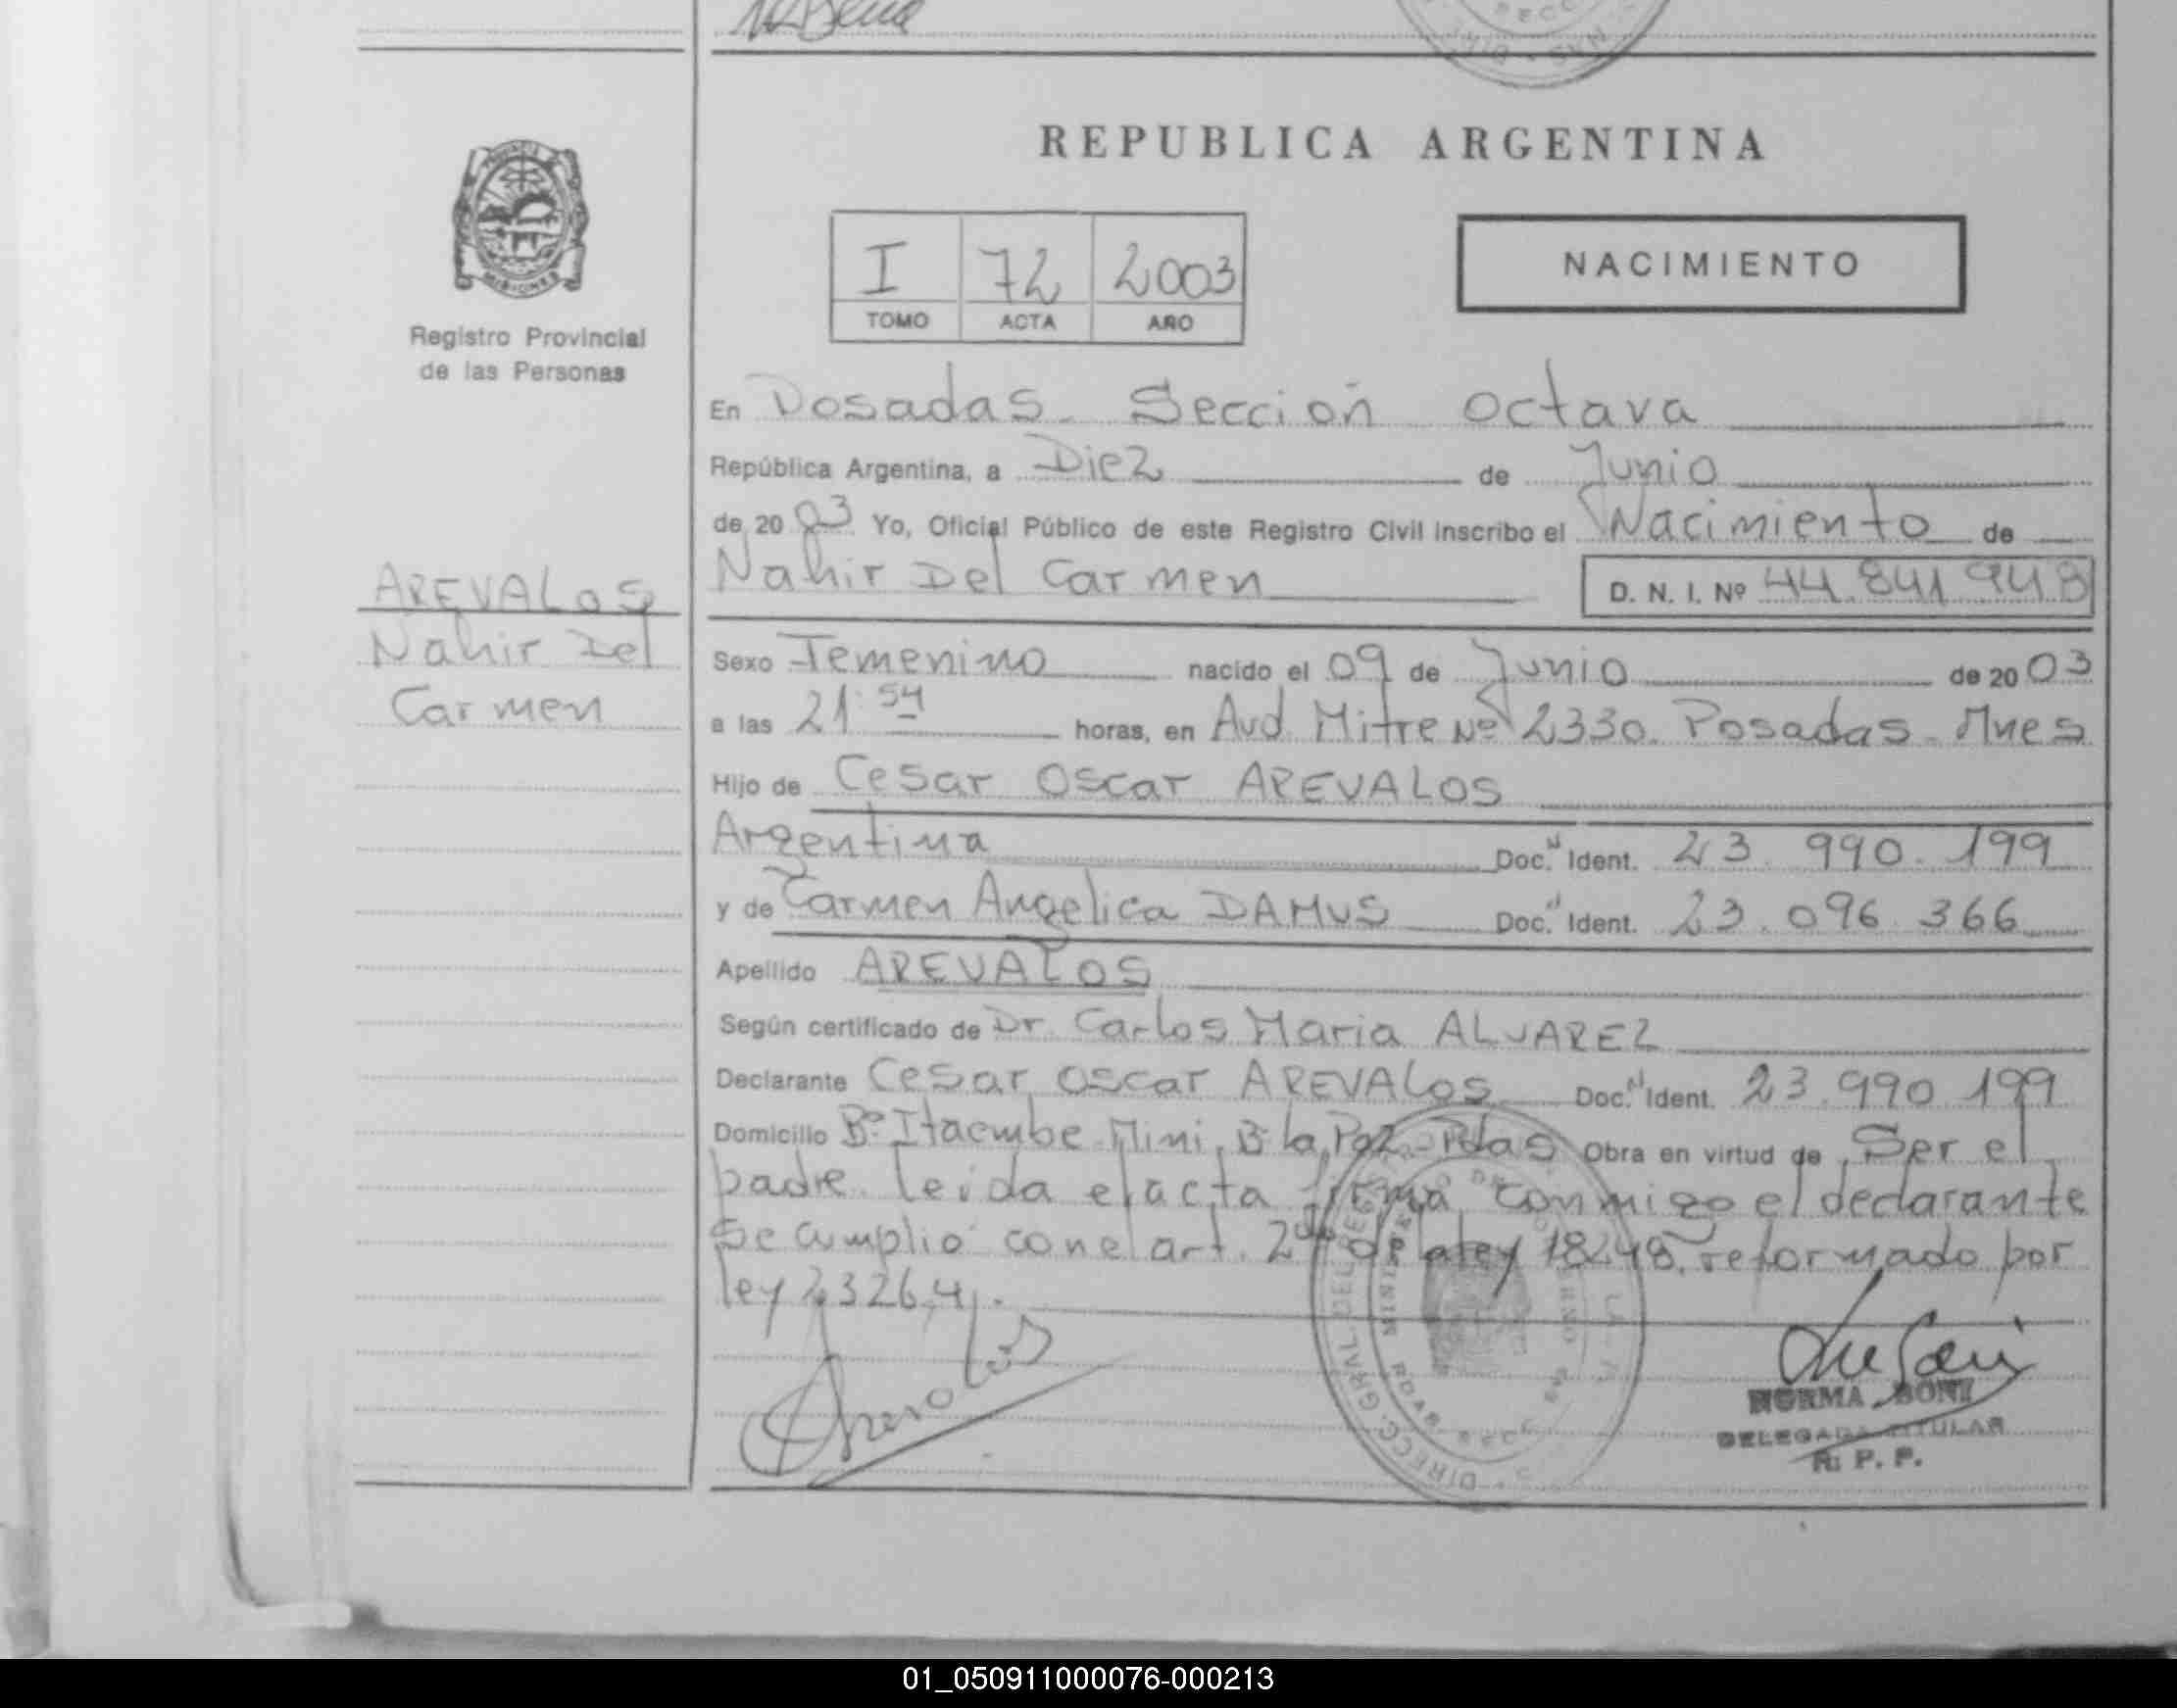 REPUBLICA ARGENTINA
PROVINCIA DE
MISIONES
Registro Provincial
de las Personas
I 72 2003
TOMO ACTA AÑO
NACIMIENTO
En Posadas - Sección octava
República Argentina, a Diez de Junio
de 2003 Yo, Oficial Público de este Registro Civil inscribo el Nacimiento de
Nahir Del Carmen D. N. I. Nº 44.841.948
AREVALOS
Nahir Del
Carmen
Sexo Femenino nacido el 09 de Junio de 2003
a las 21:54 horas, en Avd. Mitre Nº 2330. Posadas - Mnes
Hijo de Cesar Oscar AREVALOS
Argentina Doc. N Ident. 23.990.199
y de Carmen Angelica DAMUS Doc. N Ident. 23.096.366
Apellido AREVALOS
Según certificado de Dr. Carlos Maria ALVAREZ
Declarante Cesar Oscar AREVALOS Doc. N Ident. 23.990.199
Domicilio Bº Itaembe Mini, B la Paz - Pdas Obra en virtud de Ser el
padre. leida el acta firma conmigo el declarante
Se cumplio con el art. 2do de la ley 18248, reformado por
ley 23264.
Arevalos
NORMA BONI
DELEGADA TITULAR
R. P. P.
01_050911000076-000213